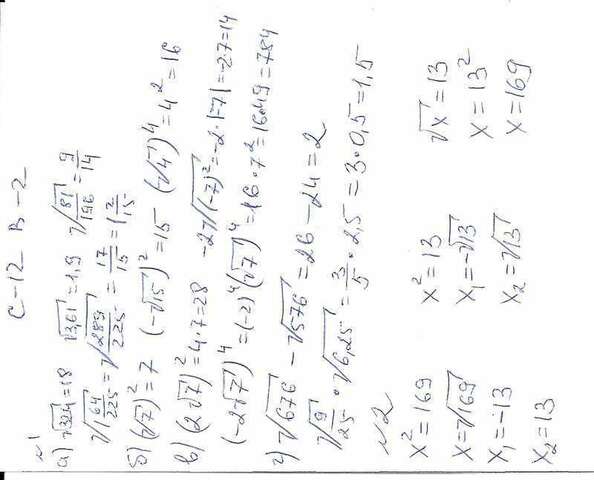 С-12 В-2
№1
а) √324=18 √3,61=1,9 √81/196=9/14
√1 64/225=√289/225=17/15=1 2/15
б) (√7)²=7 (-√15)²=15 (√4)⁴=4²=16
в) (2√7)²=4·7=28 -2√(-7)²=-2·|-7|=-2·7=14
(-2√7)⁴=(-2)⁴(√7)⁴=16·7²=16·49=784
г) √676-√576=26-24=2
√9/25·√6,25=3/5·2,5=3·0,5=1,5
№2
x²=169 x²=13 √x=13
x=√169 x₁=-√13 x=13²
x₁=-13 x₂=√13 x=169
x₂=13